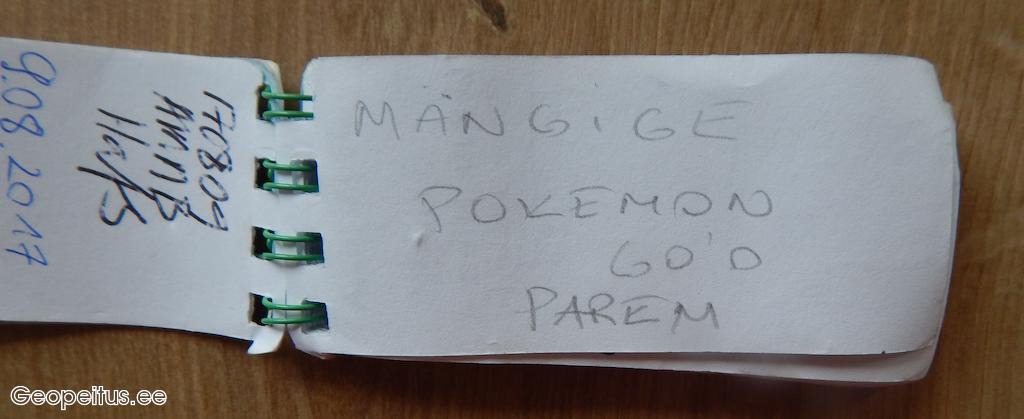 9.08.2017
170809
MÄNGiGE
POKEMON
GO'D
PAREM
Geopeitus.ee